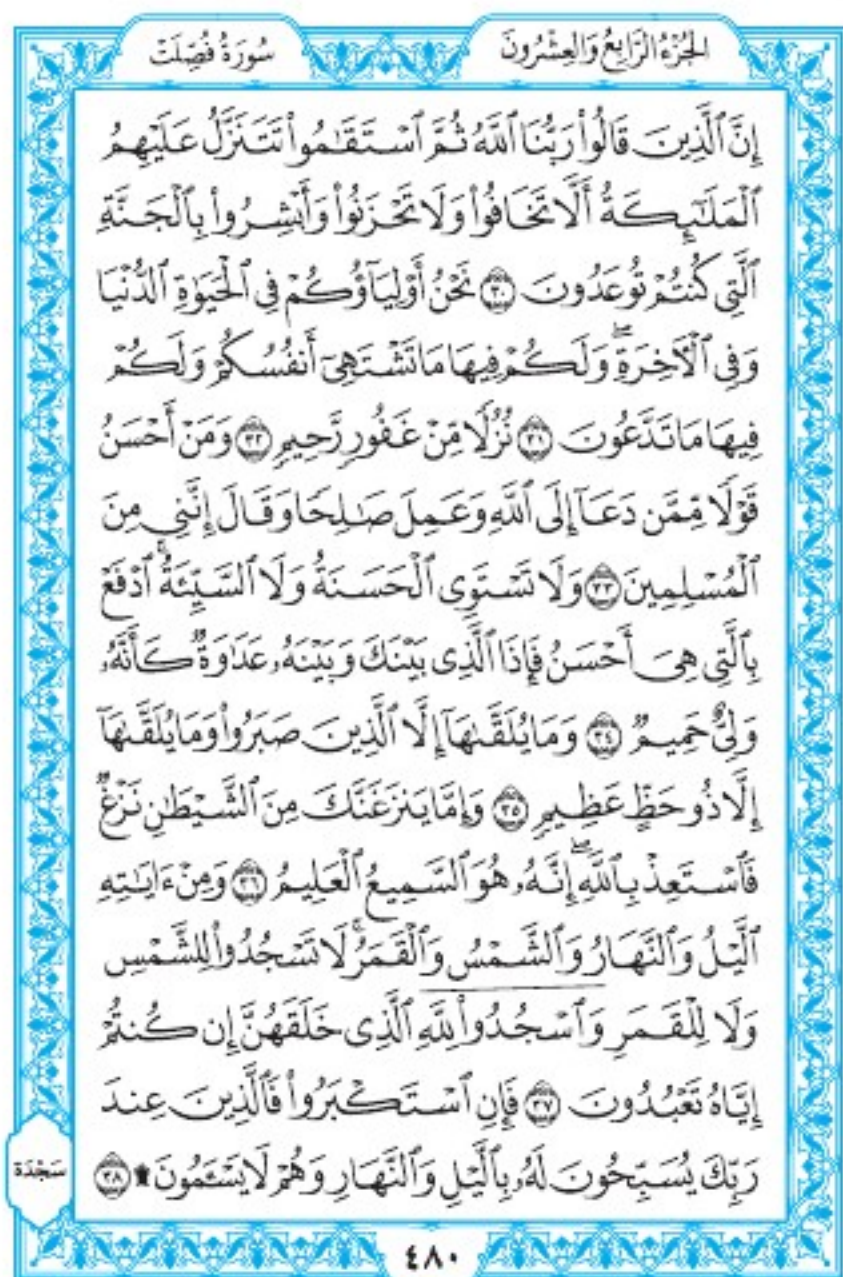 سُورَةُ فُصِّلَتْ
الجُزْءُ الرَّابِعُ وَالعِشْرُونَ
إِنَّ ٱلَّذِينَ قَالُوا۟ رَبُّنَا ٱللَّهُ ثُمَّ ٱسْتَقَٰمُوا۟ تَتَنَزَّلُ عَلَيْهِمُ
ٱلْمَلَٰٓئِكَةُ أَلَّا تَخَافُوا۟ وَلَا تَحْزَنُوا۟ وَأَبْشِرُوا۟ بِٱلْجَنَّةِ
ٱلَّتِى كُنتُمْ تُوعَدُونَ ٣٠ نَحْنُ أَوْلِيَآؤُكُمْ فِى ٱلْحَيَوٰةِ ٱلدُّنْيَا
وَفِى ٱلْءَاخِرَةِ ۖ وَلَكُمْ فِيهَا مَا تَشْتَهِىٓ أَنفُسُكُمْ وَلَكُمْ
فِيهَا مَا تَدَّعُونَ ٣١ نُزُلًا مِّنْ غَفُورٍ رَّحِيمٍ ٣٢ وَمَنْ أَحْسَنُ
قَوْلًا مِّمَّن دَعَآ إِلَى ٱللَّهِ وَعَمِلَ صَٰلِحًا وَقَالَ إِنَّنِى مِنَ
ٱلْمُسْلِمِينَ ٣٣ وَلَا تَسْتَوِى ٱلْحَسَنَةُ وَلَا ٱلسَّيِّئَةُ ۚ ٱدْفَعْ
بِٱلَّتِى هِىَ أَحْسَنُ فَإِذَا ٱلَّذِى بَيْنَكَ وَبَيْنَهُۥ عَدَٰوَةٌ كَأَنَّهُۥ
وَلِىٌّ حَمِيمٌ ٣٤ وَمَا يُلَقَّىٰهَآ إِلَّا ٱلَّذِينَ صَبَرُوا۟ وَمَا يُلَقَّىٰهَآ
إِلَّا ذُو حَظٍّ عَظِيمٍ ٣٥ وَإِمَّا يَنزَغَنَّكَ مِنَ ٱلشَّيْطَٰنِ نَزْغٌ
فَٱسْتَعِذْ بِٱللَّهِ ۖ إِنَّهُۥ هُوَ ٱلسَّمِيعُ ٱلْعَلِيمُ ٣٦ وَمِنْ ءَايَٰتِهِ
ٱلَّيْلُ وَٱلنَّهَارُ وَٱلشَّمْسُ وَٱلْقَمَرُ ۚ لَا تَسْجُدُوا۟ لِلشَّمْسِ
وَلَا لِلْقَمَرِ وَٱسْجُدُوا۟ لِلَّهِ ٱلَّذِى خَلَقَهُنَّ إِن كُنتُمْ
إِيَّاهُ تَعْبُدُونَ ٣٧ فَإِنِ ٱسْتَكْبَرُوا۟ فَٱلَّذِينَ عِندَ
رَبِّكَ يُسَبِّحُونَ لَهُۥ بِٱلَّيْلِ وَٱلنَّهَارِ وَهُمْ لَا يَسْـَٔمُونَ ۩ ٣٨
سَجْدَة
٤٨٠